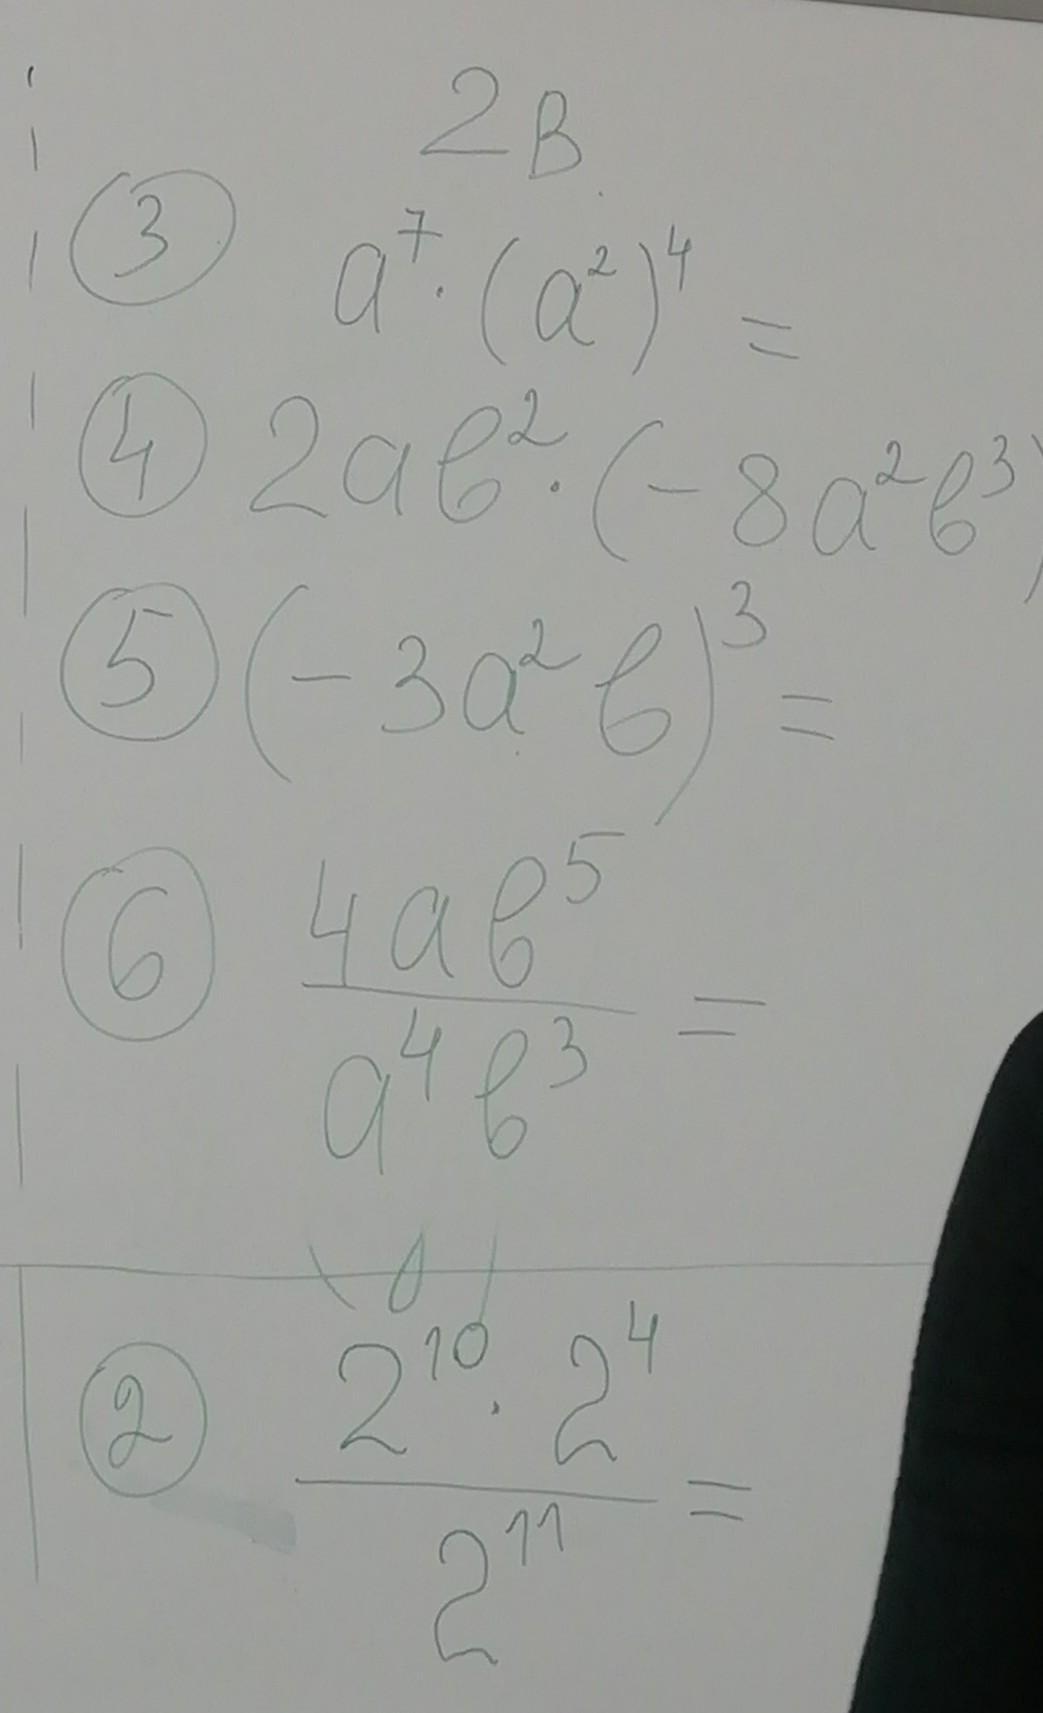 2В.
③ a⁷·(a²)⁴ =
④ 2ab²·(-8a²b³)
⑤ (-3a²b)³ =
⑥ 4ab⁵
a⁴b³ =
② 2¹⁰·2⁴
2¹¹ =